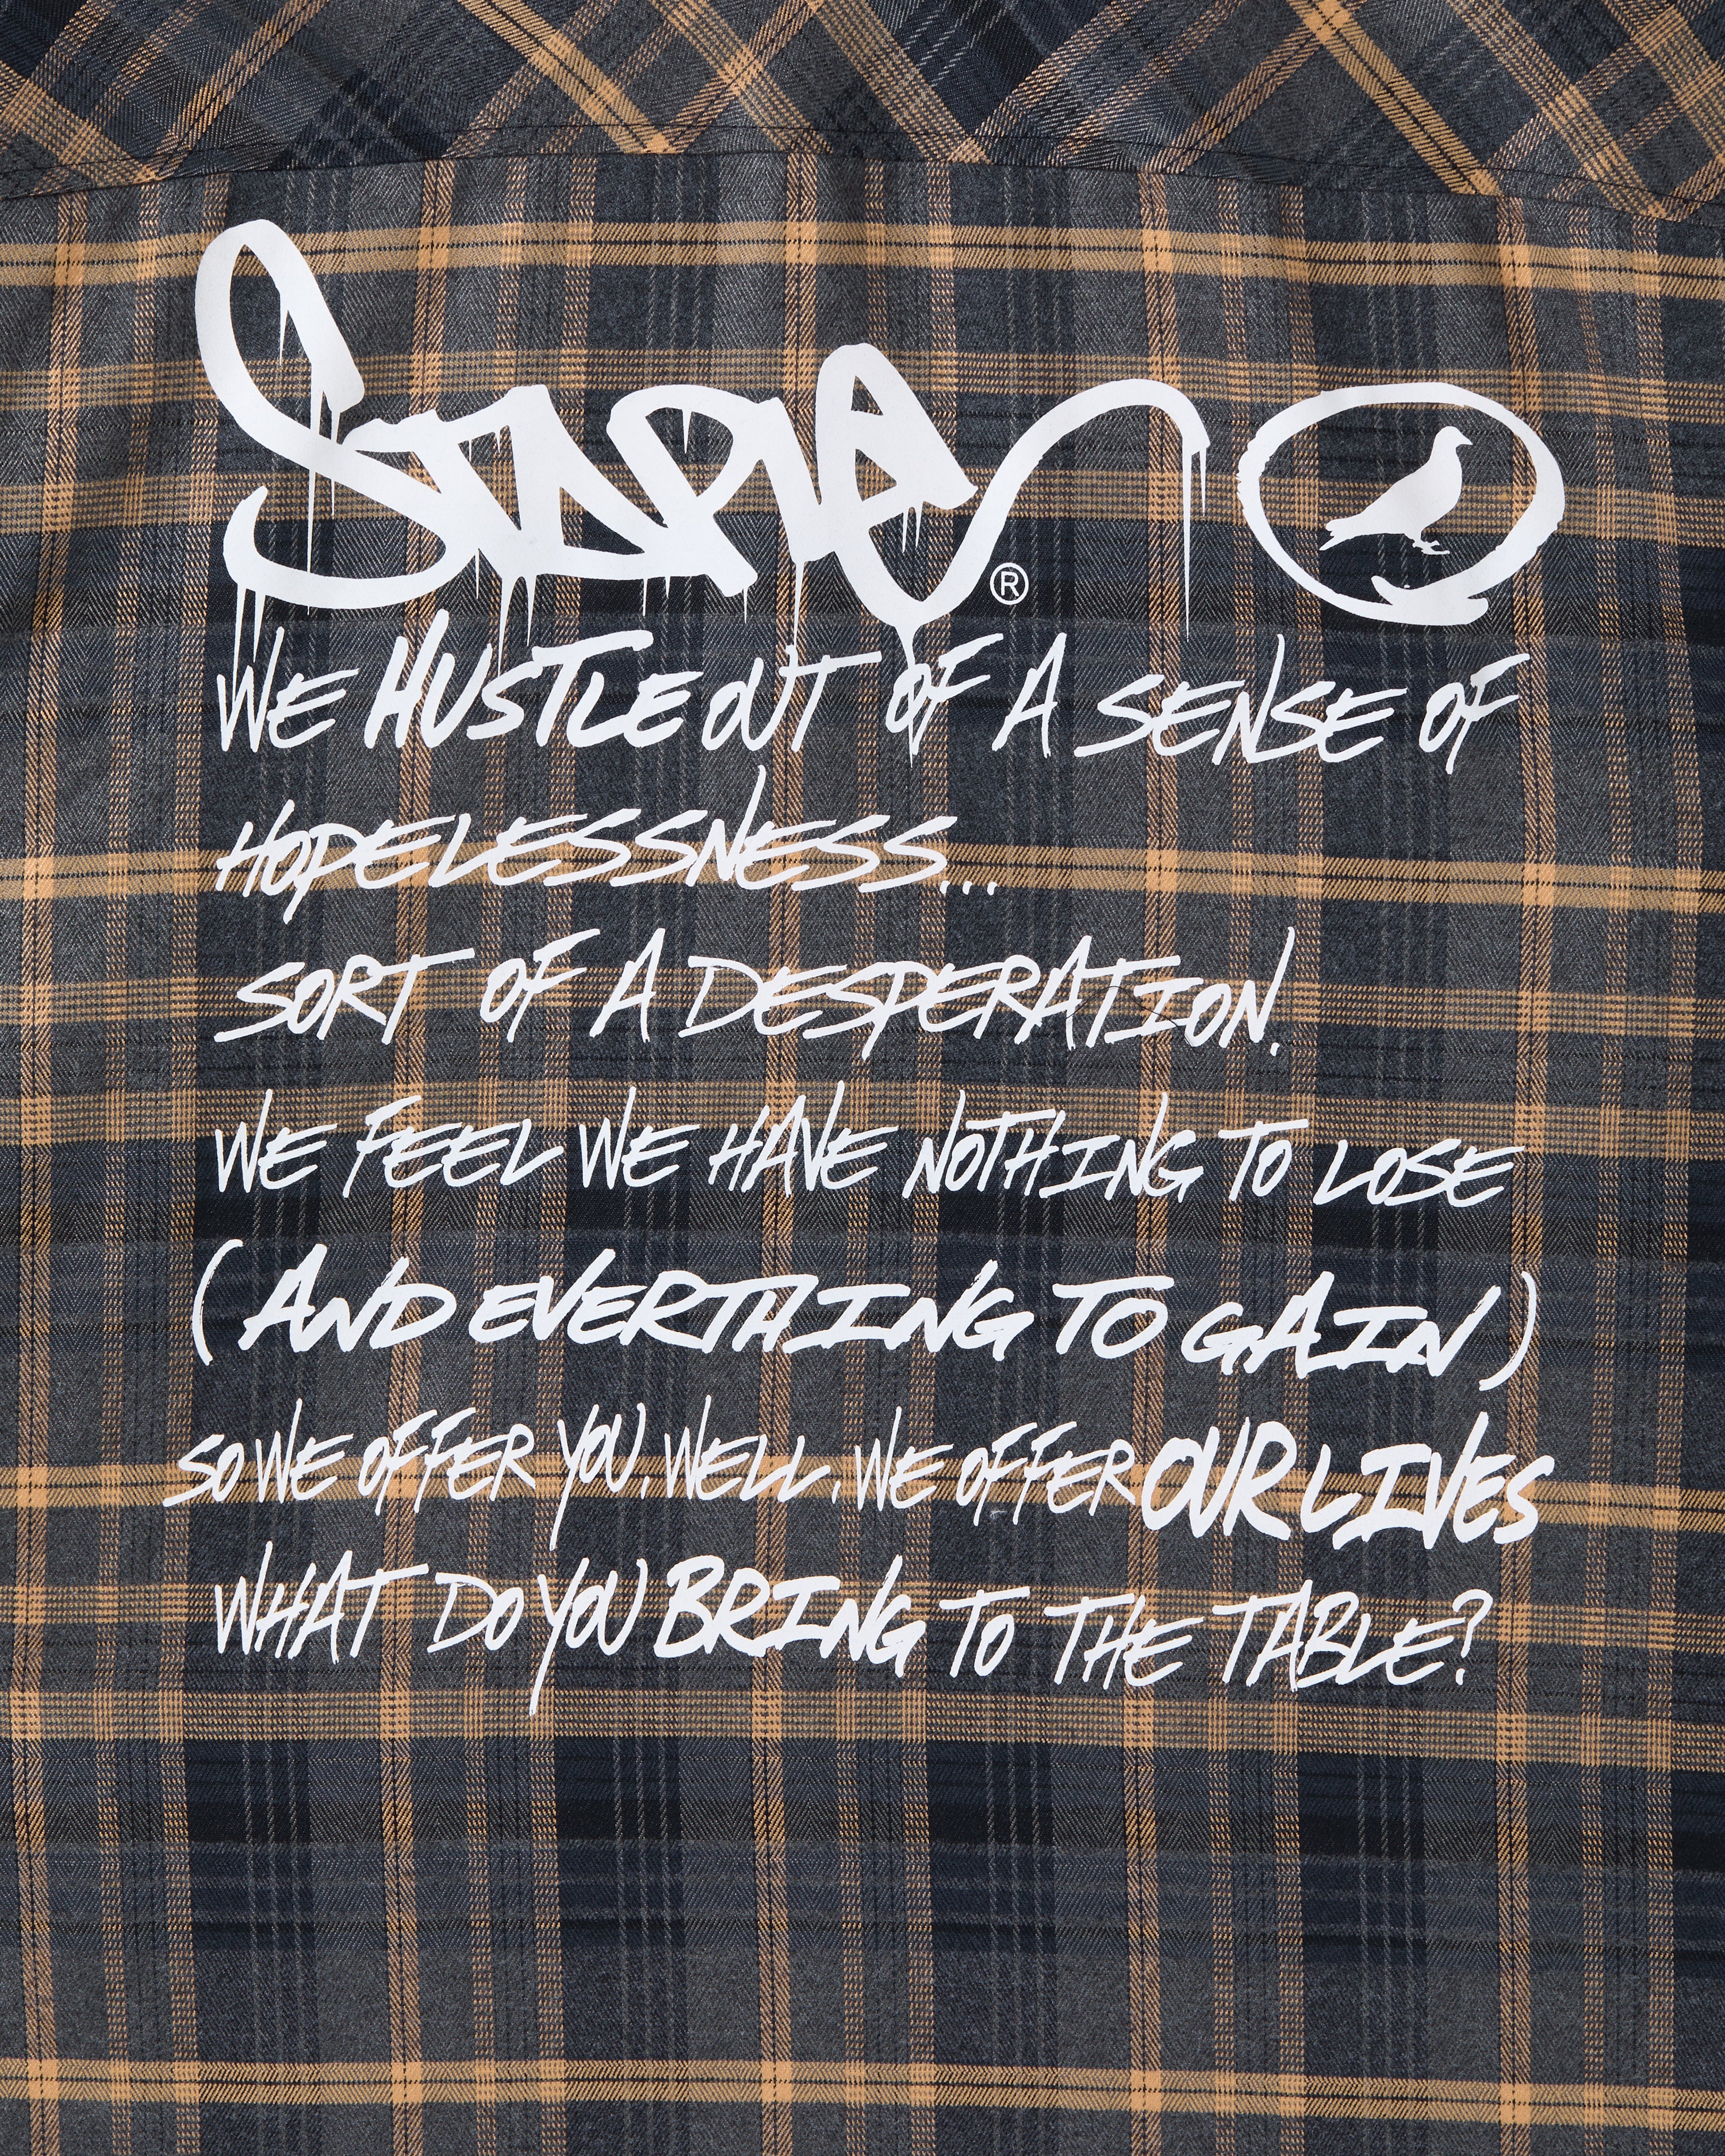 Staple ®
WE HUSTLE OUT OF A SENSE OF
HOPELESSNESS...
SORT OF A DESPERATION.
WE FEEL WE HAVE NOTHING TO LOSE
(AND EVERTHING TO GAIN)
SO WE OFFER YOU, WELL, WE OFFER OUR LIVES
WHAT DO YOU BRING TO THE TABLE?